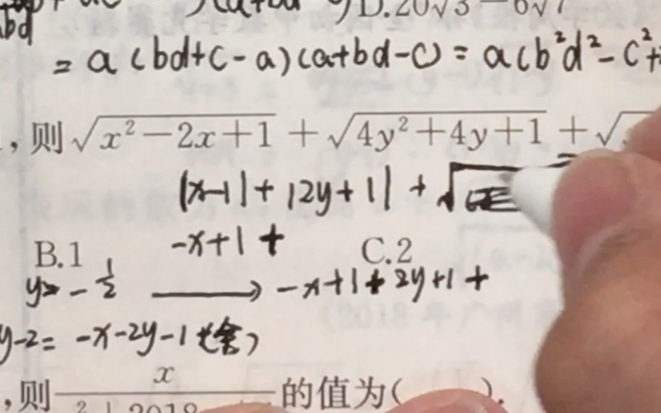 D.20√3-6√7
= a(bd+c-a)(a+bd-c) = a(b²d²-c²+
,则√(x²-2x+1) + √(4y²+4y+1) + √
|x-1| + |2y+1| + √
B.1 -x+1+ C.2
y>-1/2 ⟶ -x+1+2y+1+
y-2=-x-2y-1(舍)
,则 x 的值为( ).